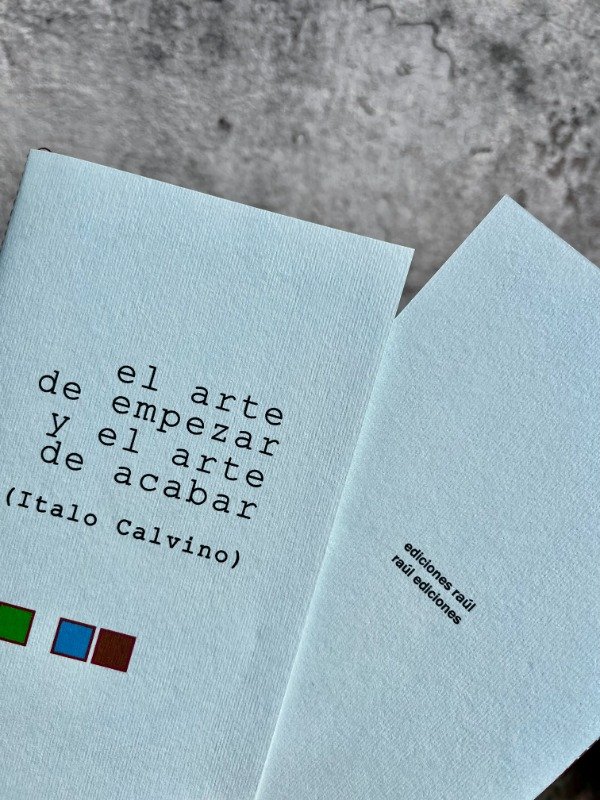 el arte
de empezar
y el arte
de acabar
(Italo Calvino)
ediciones raúl
raúl ediciones